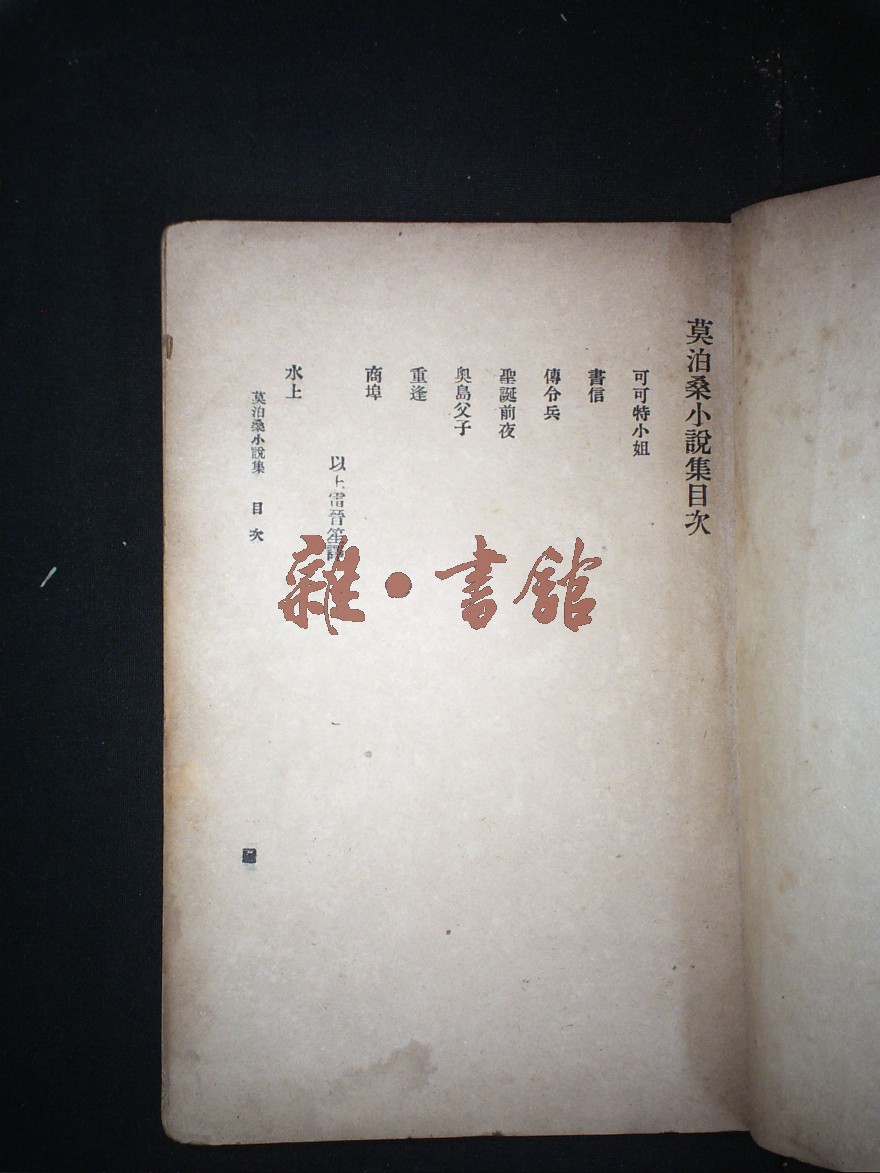 莫泊桑小說集目次
可可特小姐
書信
傳令兵
聖誕前夜
奧島父子
重逢
商埠
以上雷晉笙譯
水上
莫泊桑小說集　目次
雜・書館